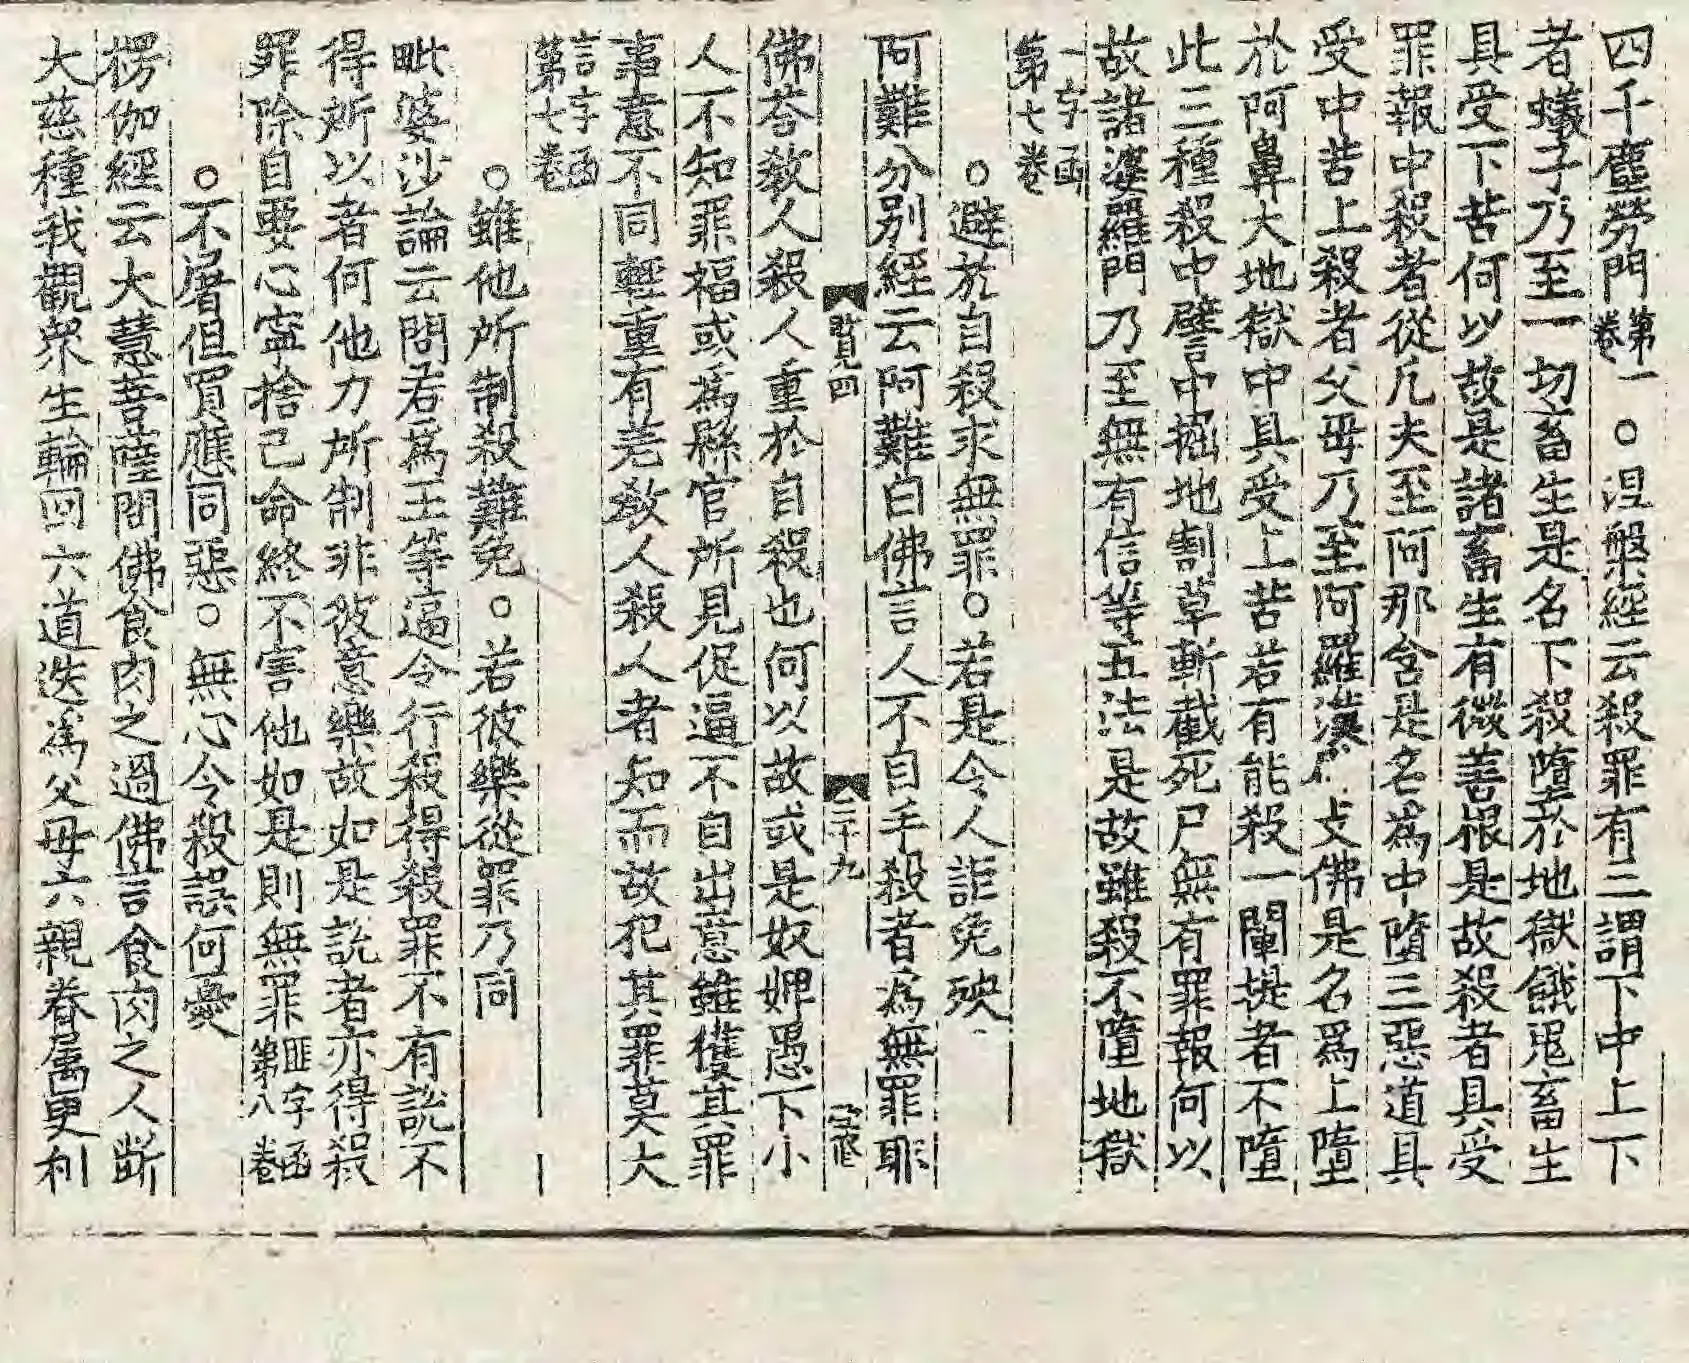 四千塵勞門第一卷○涅槃經云殺罪有三謂下中上下
者蟻子乃至一切畜生是名下殺墮於地獄餓鬼畜生
具受下苦何以故是諸畜生有微善根是故殺者具受
罪報中殺者從凡夫至阿那含是名為中墮三惡道具
受中苦上殺者父母乃至阿羅漢支佛是名爲上墮
於阿鼻大地獄中具受上苦若有能殺一闡提者不墮
此三種殺中譬中掘地割草斬截死尸無有罪報何以
故諸婆羅門乃至無有信等五法是故雖殺不墮地獄
一字函第七卷
○避於自殺求無罪○若是令人詎免殃
阿難分別經云阿難白佛言人不自手殺者為無罪耶
賢見四 三十九
佛荅教人殺人重於自殺也何以故或是奴婢愚下小
人不知罪福或為縣官所見促逼不自出意雖獲其罪
事意不同輕重有差教人殺人者知而故犯其罪莫大
言字函第七卷
○雖他所制殺難免○若彼樂從罪乃同
毗婆沙論云問若為王等逼令行殺得殺罪不有説不
得所以者何他力所制非彼意樂故如是説者亦得殺
罪除自要心寧捨己命終不害他如是則無罪匪字函第八卷
○不屠但買應同惡○無心令殺誤何憂
楞伽經云大慧菩薩問佛食肉之過佛言食肉之人斷
大慈種我觀衆生輪回六道迭為父母六親眷属更利